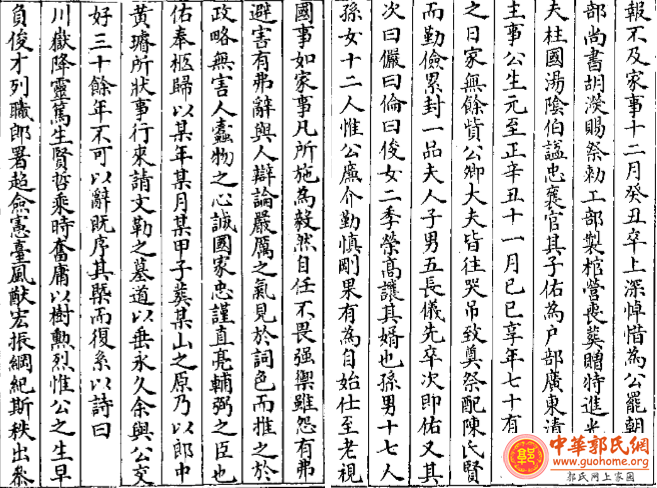 報不及家事十二月癸丑卒上深悼惜為公罷朝
部尚書胡濙賜祭勑工部製棺營喪葬贈特進光
夫柱國湯陰伯諡忠襄官其子佑為戶部廣東清
主事公生元至正辛丑十一月己巳享年七十有
之日家無餘貲公卿大夫皆往哭吊致奠祭配陳氏賢
而勤儉累封一品夫人子男五長儀先卒次即佑又其
次曰儼曰倫曰俊女二季榮高讓其婿也孫男十七人
孫女十二人惟公廉介勤慎剛果有為自始仕至老視
國事如家事凡所施為毅然自任不畏强禦雖怨有弗
避害有弗辭與人辯論嚴厲之氣見於詞色而推之於
政略無害人蠹物之心誠國家忠謹直亮輔弼之臣也
佑奉柩歸以某年某月某甲子葬某山之原乃以郎中
黃璿所狀事行來請文勒之墓道以垂永久余與公交
好三十餘年不可以辭既序其槩而復系以詩曰
川嶽降靈篤生賢哲乘時奮庸以樹勲烈惟公之生早
負俊才列職郎署超僉憲臺風猷宏振綱紀斯秩出叅
中華郭氏網
www.guohome.org
郭氏网上家園